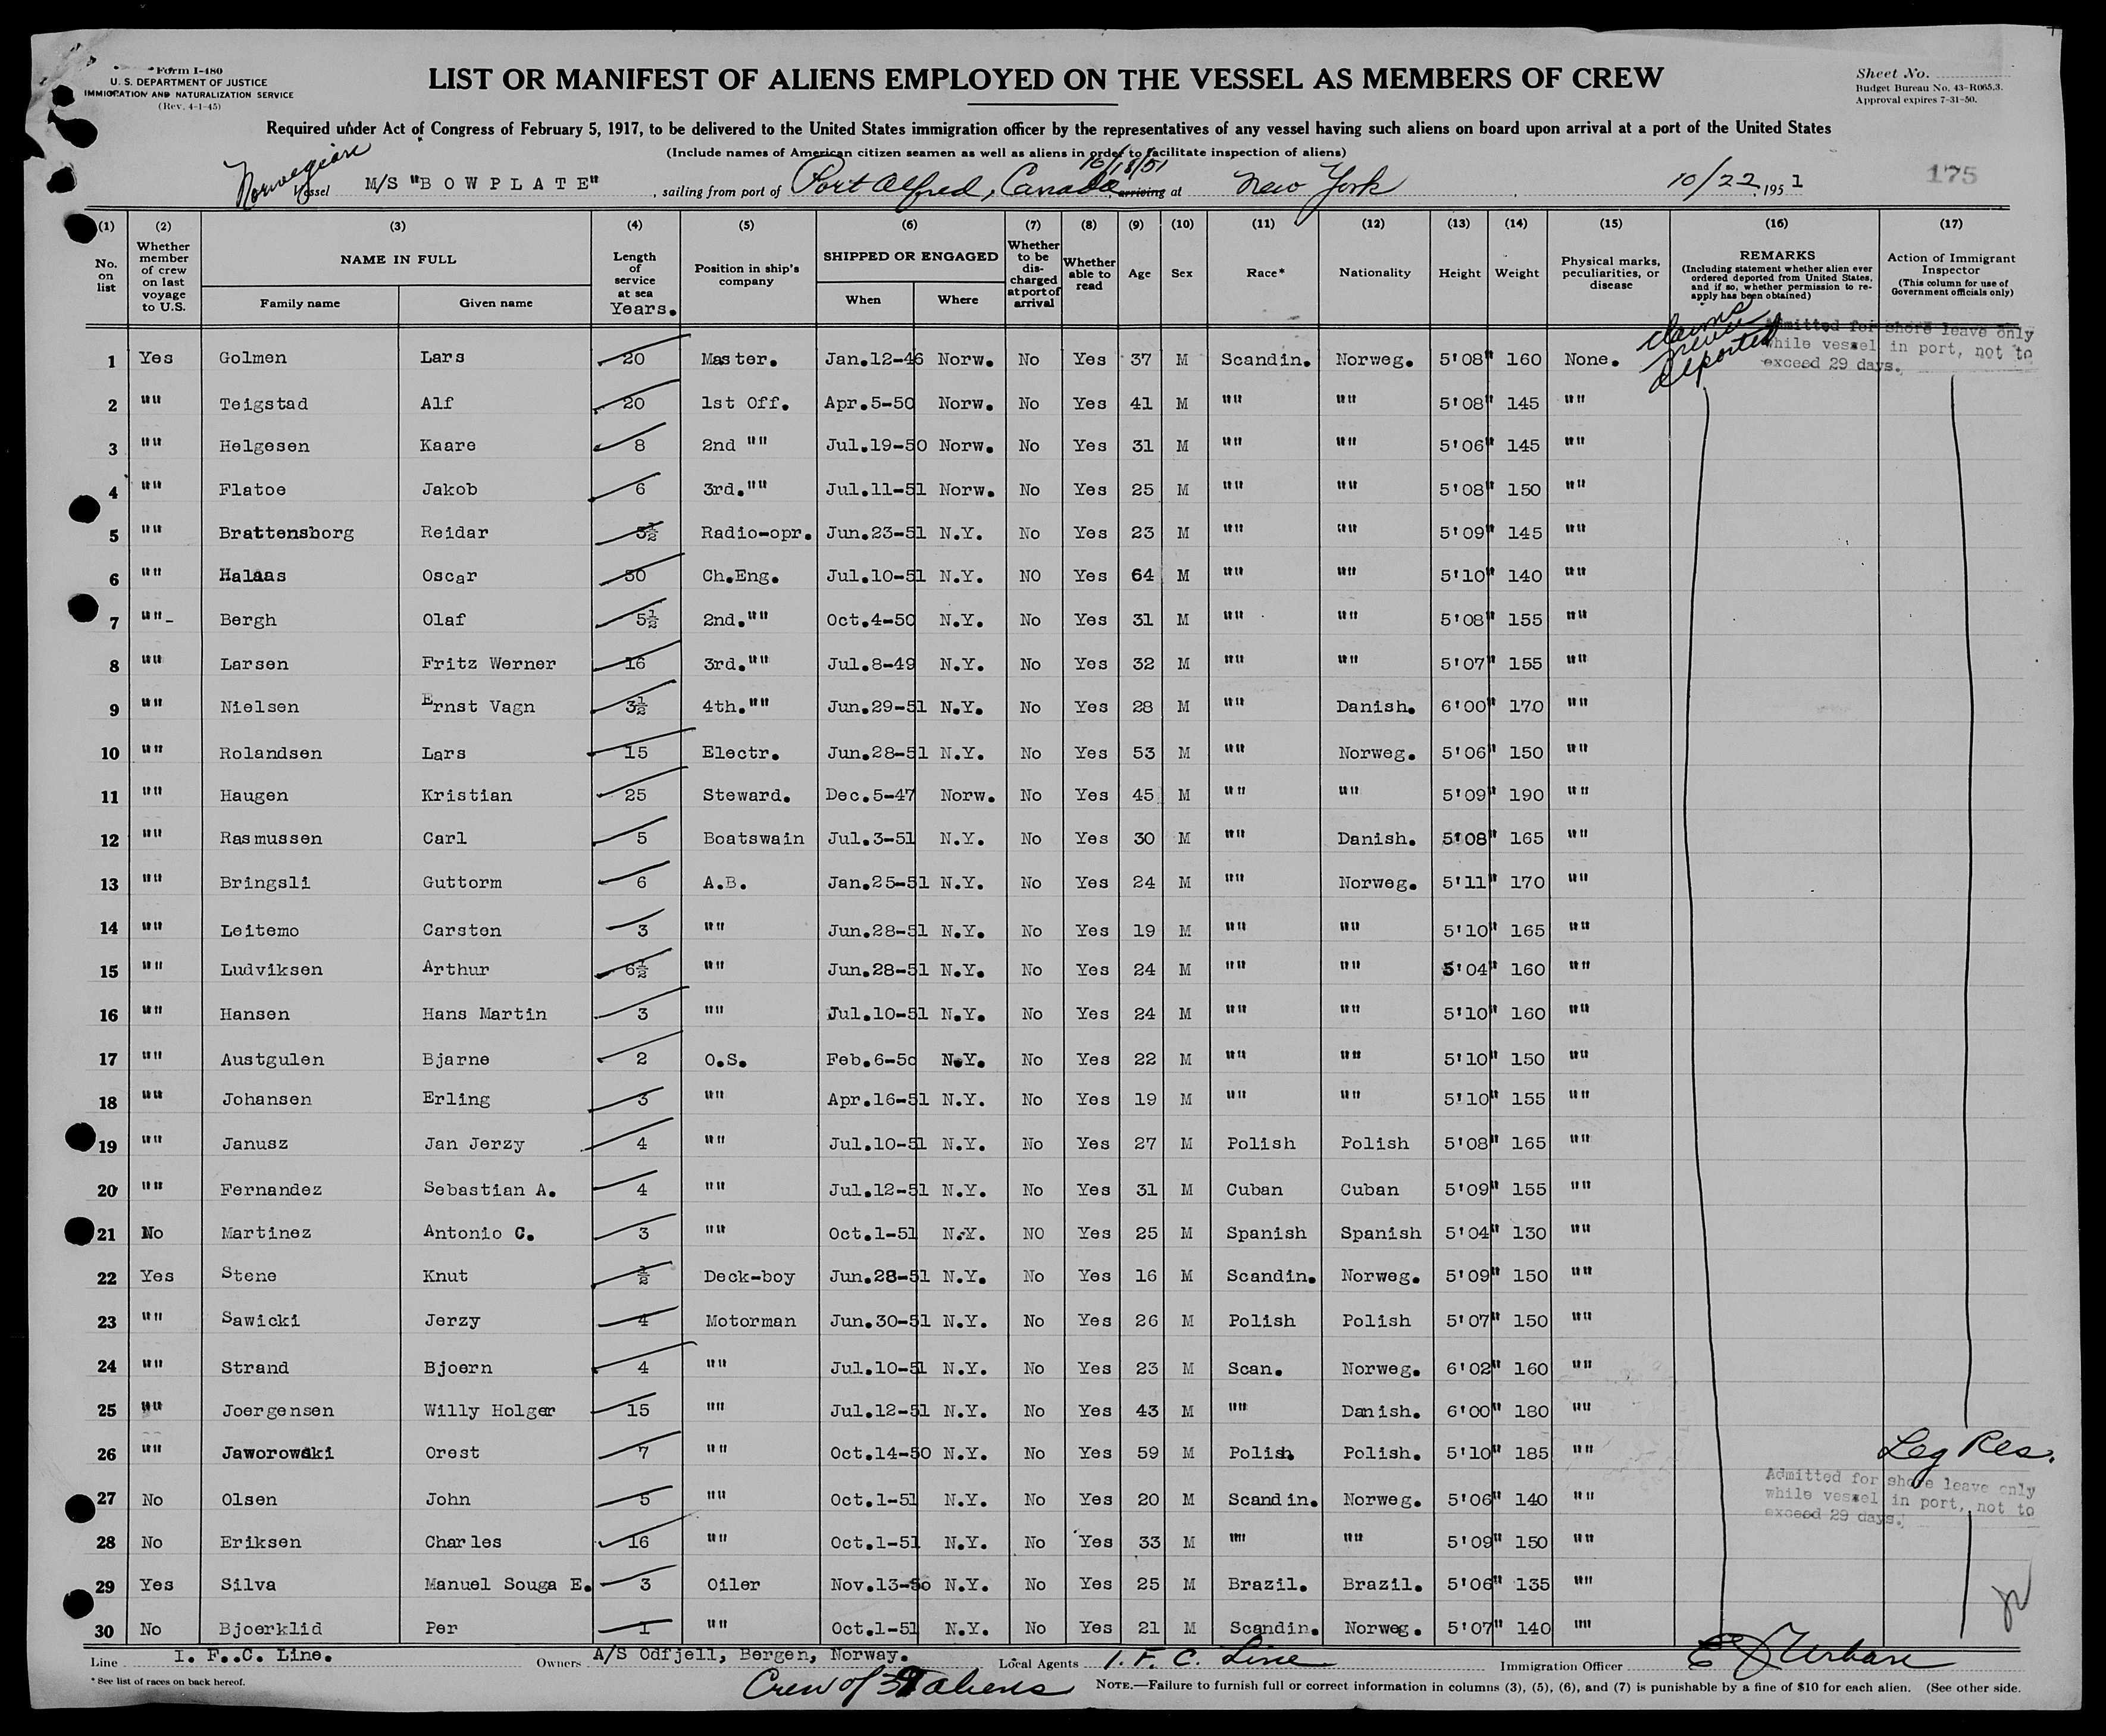 Form I-480
U. S. DEPARTMENT OF JUSTICE
IMMIGRATION AND NATURALIZATION SERVICE
(Rev. 4-1-45)
LIST OR MANIFEST OF ALIENS EMPLOYED ON THE VESSEL AS MEMBERS OF CREW
Sheet No.
Budget Bureau No. 43-R065.3.
Approval expires 7-31-50.
Required under Act of Congress of February 5, 1917, to be delivered to the United States immigration officer by the representatives of any vessel having such aliens on board upon arrival at a port of the United States
(Include names of American citizen seamen as well as aliens in order to facilitate inspection of aliens)
Norwegian
10/18/51
Vessel M/S "B O W P L A T E", sailing from port of Port Alfred, Canada, arriving at New York 10/22, 1951
175
(1) (2) (3) (4) (5) (6) (7) (8) (9) (10) (11) (12) (13) (14) (15) (16) (17)
No. on list
Whether member of crew on last voyage to U.S.
NAME IN FULL
Family name Given name
Length of service at sea Years.
Position in ship's company
SHIPPED OR ENGAGED
When Where
Whether to be discharged at port of arrival
Whether able to read
Age Sex Race* Nationality Height Weight
Physical marks, peculiarities, or disease
REMARKS
(Including statement whether alien ever ordered deported from United States, and if so, whether permission to reapply has been obtained)
Action of Immigrant Inspector
(This column for use of Government officials only)
claims never deported
Admitted for shore leave only
while vessel in port, not to
exceed 29 days.
1 Yes Golmen Lars 20 Master. Jan.12-46 Norw. No Yes 37 M Scandin. Norweg. 5'08" 160 None.
2 "" Teigstad Alf 20 1st Off. Apr.5-50 Norw. No Yes 41 M "" "" 5'08" 145 ""
3 "" Helgesen Kaare 8 2nd "" Jul.19-50 Norw. No Yes 31 M "" "" 5'06" 145 ""
4 "" Flatoe Jakob 6 3rd."" Jul.11-51 Norw. No Yes 25 M "" "" 5'08" 150 ""
5 "" Brattensborg Reidar 3½ Radio-opr. Jun.23-51 N.Y. No Yes 23 M "" "" 5'09" 145 ""
6 "" Halaas Oscar 50 Ch.Eng. Jul.10-51 N.Y. NO Yes 64 M "" "" 5'10" 140 ""
7 ""- Bergh Olaf 5½ 2nd."" Oct.4-50 N.Y. No Yes 31 M "" "" 5'08" 155 ""
8 "" Larsen Fritz Werner 16 3rd."" Jul.8-49 N.Y. No Yes 32 M "" "" 5'07" 155 ""
9 "" Nielsen Ernst Vagn 3½ 4th."" Jun.29-51 N.Y. No Yes 28 M "" Danish. 6'00" 170 ""
10 "" Rolandsen Lars 15 Electr. Jun.28-51 N.Y. No Yes 53 M "" Norweg. 5'06" 150 ""
11 "" Haugen Kristian 25 Steward. Dec.5-47 Norw. No Yes 45 M "" "" 5'09" 190 ""
12 "" Rasmussen Carl 5 Boatswain Jul.3-51 N.Y. No Yes 30 M "" Danish. 5'08" 165 ""
13 "" Bringsli Guttorm 6 A.B. Jan.25-51 N.Y. No Yes 24 M "" Norweg. 5'11" 170 ""
14 "" Leitemo Carsten 3 "" Jun.28-51 N.Y. No Yes 19 M "" "" 5'10" 165 ""
15 "" Ludviksen Arthur 6½ "" Jun.28-51 N.Y. No Yes 24 M "" "" 5'04" 160 ""
16 "" Hansen Hans Martin 3 "" Jul.10-51 N.Y. No Yes 24 M "" "" 5'10" 160 ""
17 "" Austgulen Bjarne 2 O.S. Feb.6-50 N.Y. No Yes 22 M "" "" 5'10" 150 ""
18 "" Johansen Erling 3 "" Apr.16-51 N.Y. No Yes 19 M "" "" 5'10" 155 ""
19 "" Janusz Jan Jerzy 4 "" Jul.10-51 N.Y. No Yes 27 M Polish Polish 5'08" 165 ""
20 "" Fernandez Sebastian A. 4 "" Jul.12-51 N.Y. No Yes 31 M Cuban Cuban 5'09" 155 ""
21 No Martinez Antonio C. 3 "" Oct.1-51 N.Y. NO Yes 25 M Spanish Spanish 5'04" 130 ""
22 Yes Stene Knut ½ Deck-boy Jun.28-51 N.Y. No Yes 16 M Scandin. Norweg. 5'09" 150 ""
23 "" Sawicki Jerzy 4 Motorman Jun.30-51 N.Y. No Yes 26 M Polish Polish 5'07" 150 ""
24 "" Strand Bjoern 4 "" Jul.10-51 N.Y. No Yes 23 M Scan. Norweg. 6'02" 160 ""
25 "" Joergensen Willy Holger 15 "" Jul.12-51 N.Y. No Yes 43 M "" Danish. 6'00" 180 ""
26 "" Jaworowski Orest 7 "" Oct.14-50 N.Y. No Yes 59 M Polish. Polish. 5'10" 185 "" Leg Res.
Admitted for shore leave only
while vessel in port, not to
exceed 29 days.
27 No Olsen John 5 "" Oct.1-51 N.Y. No Yes 20 M Scandin. Norweg. 5'06" 140 ""
28 No Eriksen Charles 16 "" Oct.1-51 N.Y. No Yes 33 M "" "" 5'09" 150 ""
29 Yes Silva Manuel Souga E. 3 Oiler Nov.13-50 N.Y. No Yes 25 M Brazil. Brazil. 5'06" 135 ""
30 No Bjoerklid Per 1 "" Oct.1-51 N.Y. No Yes 21 M Scandin. Norweg. 5'07" 140 ""
Line I. F..C. Line. Owners A/S Odfjell, Bergen, Norway. Local Agents I. F. C. Line Immigration Officer E J Urban
* See list of races on back hereof.
Crew of aliens
NOTE.—Failure to furnish full or correct information in columns (3), (5), (6), and (7) is punishable by a fine of $10 for each alien. (See other side.